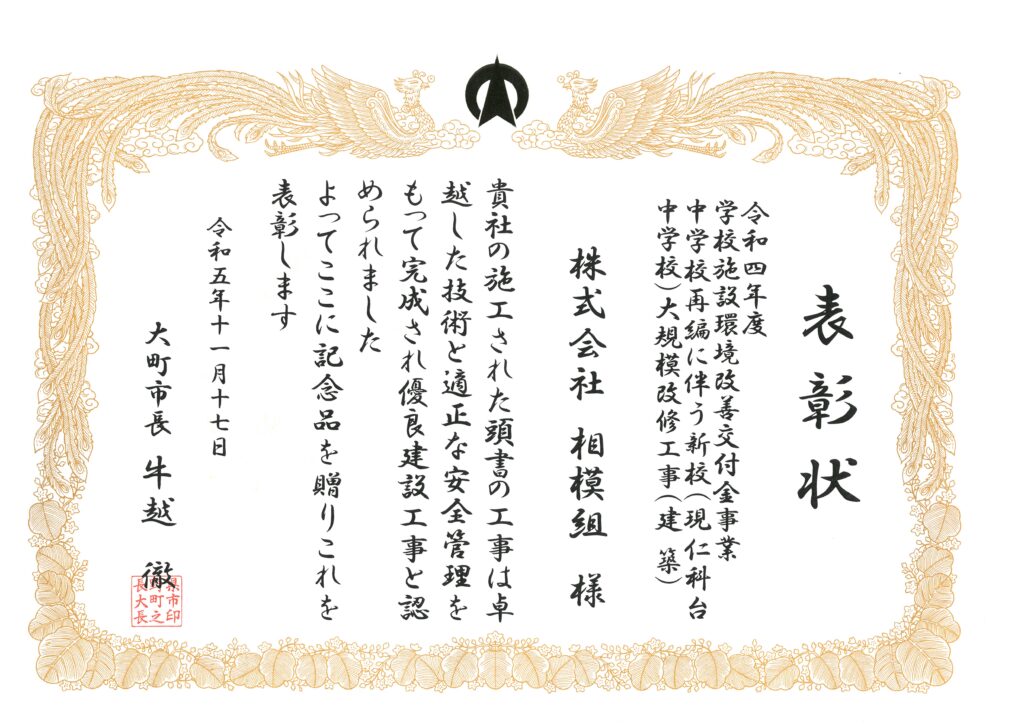 表彰状
令和四年度
学校施設環境改善交付金事業
中学校再編に伴う新校(現仁科台
中学校)大規模改修工事(建築)
株式会社 相模組 様
貴社の施工された頭書の工事は卓
越した技術と適正な安全管理を
もって完成され優良建設工事と認
められました
よってここに記念品を贈りこれを
表彰します
令和五年十一月十七日
大町市長 牛越 徹
県市印
野町之
長大長